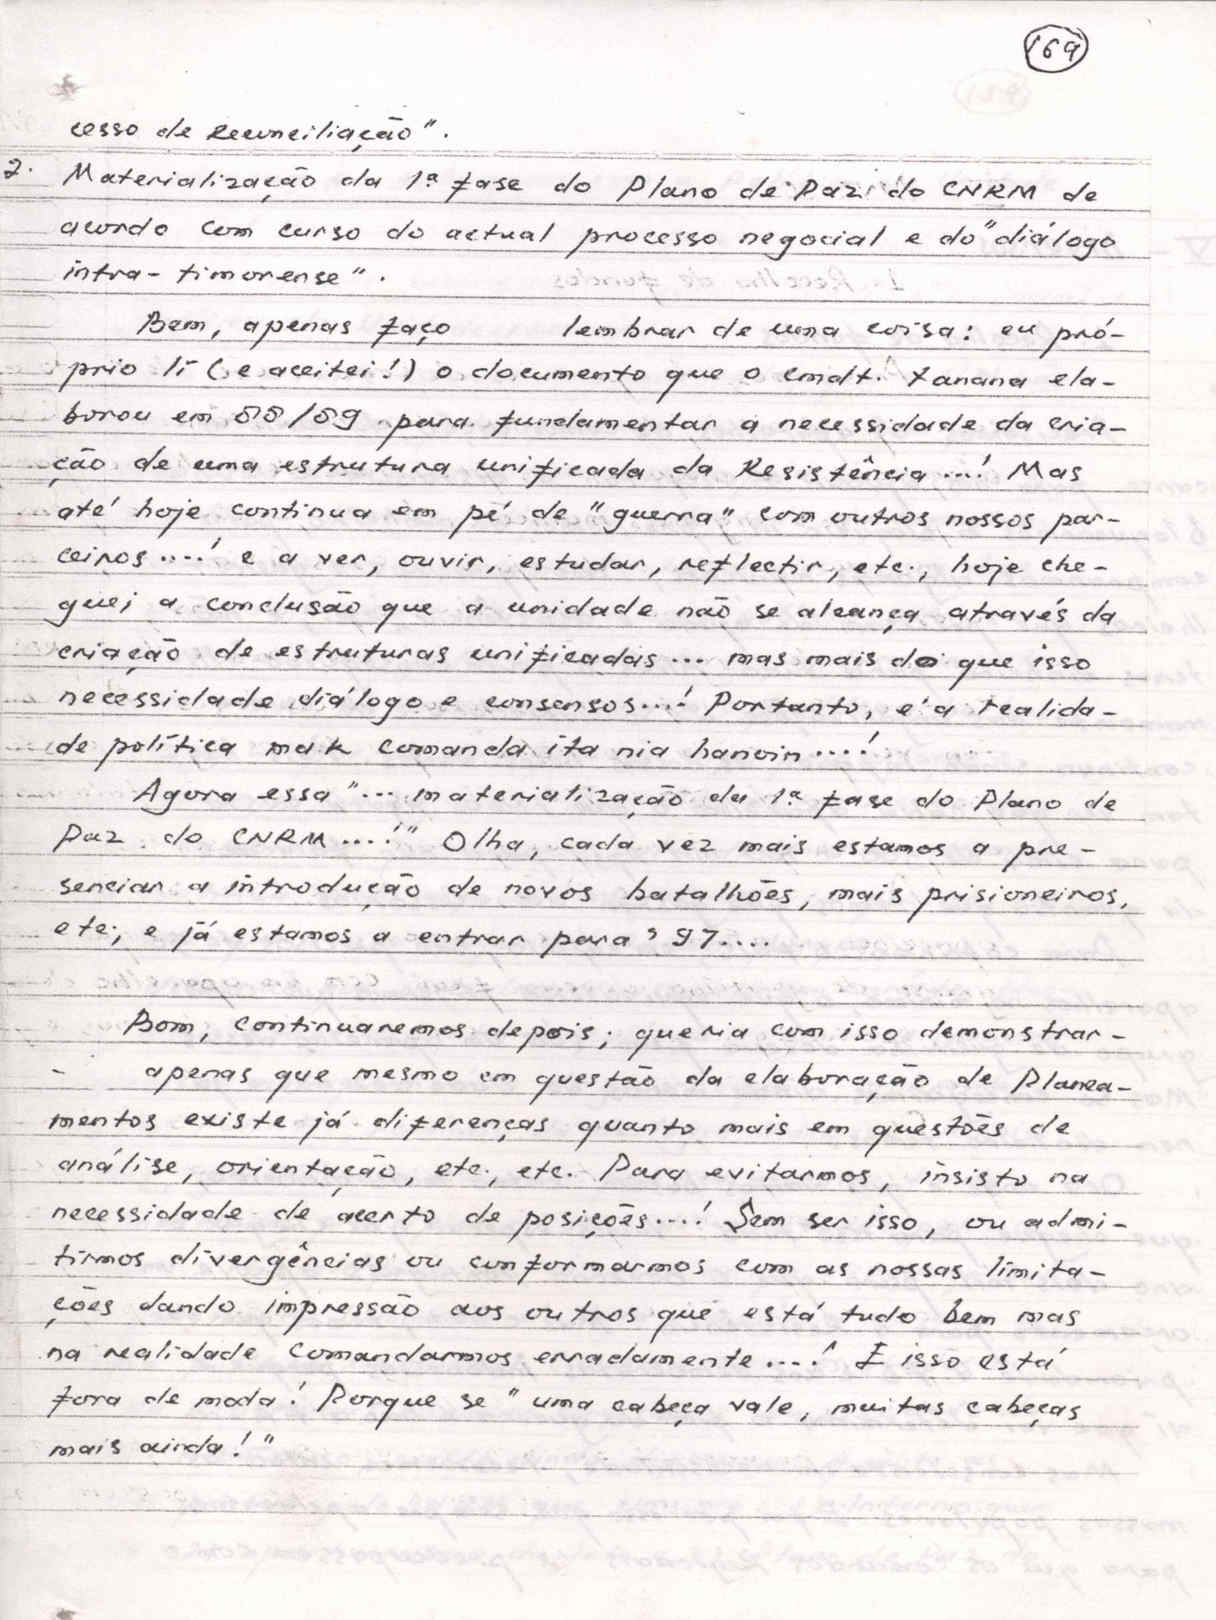 169
cesso de Reconciliação".
2. Materialização da 1ª fase do Plano de Paz do CNRM de
acordo com curso do actual processo negocial e do "diálogo
intra-timorense".
Bem, apenas faço lembrar de uma coisa: eu pró-
prio li (e aceitei!) o documento que o cmdt. Xanana ela-
borou em 88/89 para fundamentar a necessidade da cria-
ção de uma estrutura unificada da Resistência...! Mas
até hoje continua em pé de "guerra" com outros nossos par-
ceiros....! e a ver, ouvir, estudar, reflectir, etc., hoje che-
guei a conclusão que a unidade não se alcança através da
criação de estruturas unificadas... mas mais do que isso
necessidade diálogo e consensos...! Portanto, é a realida-
de política mak comanda ita nia hanoin....!
Agora essa "... materialização da 1ª fase do Plano de
Paz do CNRM...!" Olha, cada vez mais estamos a pre-
senciar a introdução de novos batalhões, mais prisioneiros,
etc; e já estamos a entrar para '97....
Bom, continuaremos depois; queria com isso demonstrar-
- apenas que mesmo em questão da elaboração de Planea-
mentos existe já diferenças quanto mais em questões de
análise, orientação, etc., etc. Para evitarmos, insisto na
necessidade de acerto de posições...! Sem ser isso, ou admi-
tirmos divergências ou conformarmos com as nossas limita-
ções dando impressão aos outros que está tudo bem mas
na realidade comandarmos erradamente...! E isso está
fora de moda! Porque se "uma cabeça vale, muitas cabeças
mais ainda!"